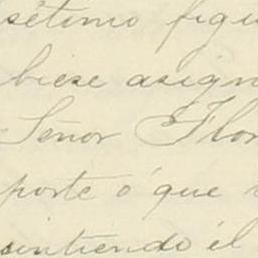 sétimo figu
biese asign
Señor Flor
porte o' que
sintiendo él